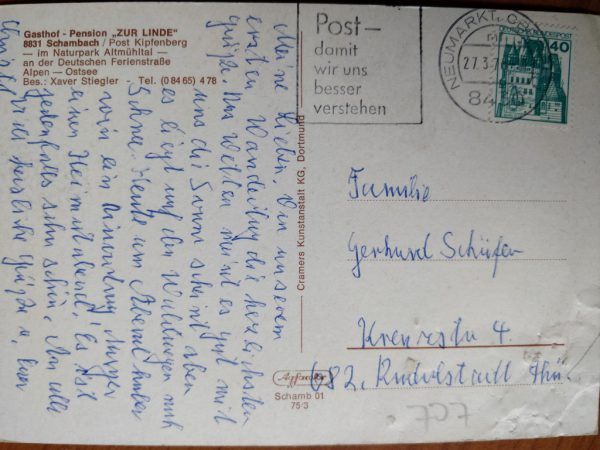 Gasthof - Pension „ZUR LINDE"
8831 Schambach / Post Kipfenberg
— im Naturpark Altmühltal —
an der Deutschen Ferienstraße
Alpen — Ostsee
Bes.: Xaver Stiegler - Tel. (0 84 65) 4 78
Meine Lieben, Von unserem
ersten Wandertag die herzlichsten
Grüße. Das Wetter meint es gut mit
uns die Sonne scheint, aber
es liegt auf den Waldwegen noch
Schnee. Heute am Abend haben
wir ein
einen Heimatabend. Es ist
jedenfalls sehr schön. An alle
viele herzliche Grüße u.
Christel
Cramers Kunstanstalt KG, Dortmund
Post—
damit
wir uns
besser
verstehen
NEUMARKT
27.3.7
84
DEUTSCHE BUNDESPOST
40
Familie
Gerhard Schäfer
4.
682 Rudolstadt Thür.
Schamb 01
75·3